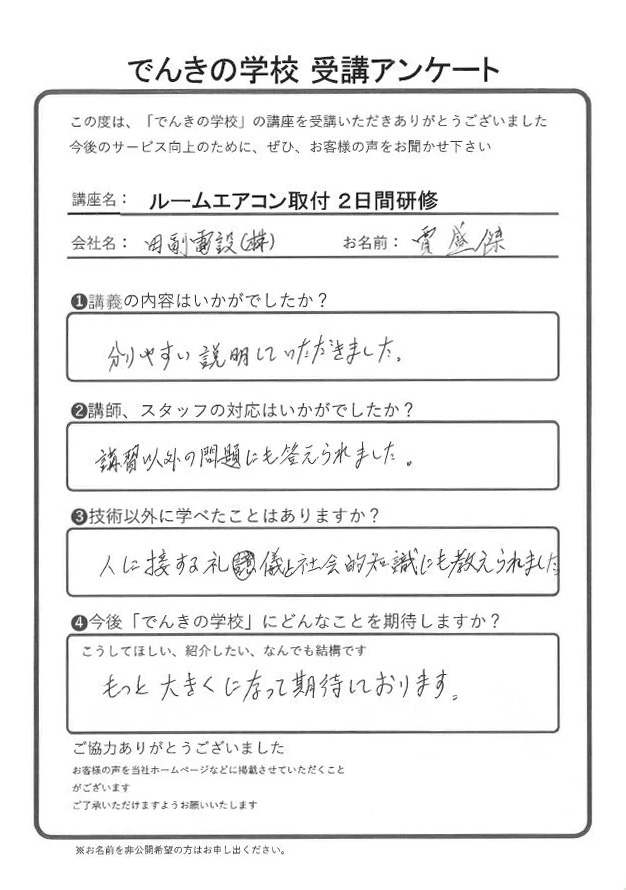 でんきの学校 受講アンケート
この度は、「でんきの学校」の講座を受講いただきありがとうございました
今後のサービス向上のために、ぜひ、お客様の声をお聞かせ下さい
講座名： ルームエアコン取付 2日間研修
会社名： 田副電設(株) お名前： 賈盛傑
❶講義の内容はいかがでしたか？
分りやすい説明していただきました。
❷講師、スタッフの対応はいかがでしたか？
講習以外の問題にも答えられました。
❸技術以外に学べたことはありますか？
人に接する礼儀と社会的知識にも教えられました
❹今後「でんきの学校」にどんなことを期待しますか？
こうしてほしい、紹介したい、なんでも結構です
もっと大きくになって期待しております。
ご協力ありがとうございました
お客様の声を当社ホームページなどに掲載させていただくこと
がございます
ご了承いただけますようお願いいたします
※お名前を非公開希望の方はお申し出ください。